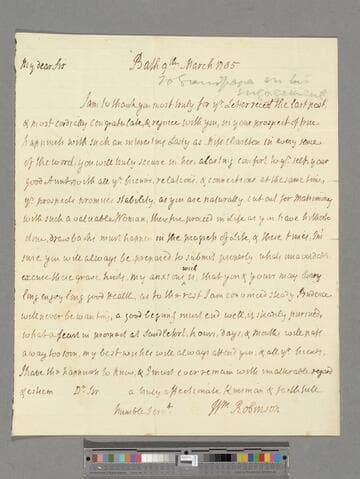 My dear Sir Bath 9th March 1785
To Grandpapa on his
engagement
I am to thank you most truly for yr Letter recd the last post,
& most cordially congratulate, & rejoice with you, in your prospect of true
happiness with such an interesting Lady as Miss Clareton in every sense
of the word. you will truly secure in her, a lasting comfort to yr self, your
Good Aunt with all yr friends, relations, & connections at the same time,
yr prospects promise stability, as you are naturally cut out for Matrimony
with such a valuable Woman, therefore proceed in Life as you have hitherto
done, drawbacks must happen in the progress of Life, & these times, I'm
sure you will always be prepared to submit properly, whats unavoidable
excuse these grave hints, my anxious wish is, that you & yours may long
long enjoy long good Health, as to the rest I am convinced steady Prudence
will never be wanting, a good beginning must end well, if steadily pursued,
what a feast in prospect at hours, days, & months will pass
away too soon, my best wishes will always attend you, & all yr friends,
I have the happiness to know, & I must ever remain with unalterable regard
& esteem Dr Sir a truly affectionate Kinsman & faithfull
humble Servt Wm Robinson